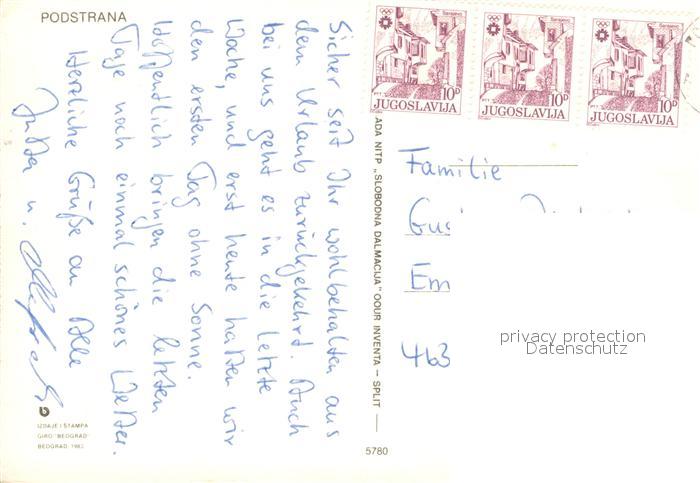 PODSTRANA
Sicher seit Ihr wohlbehalten aus
dem Urlaub zurückgekehrt. Auch
bei uns geht es in die letzte
Woche, und erst heute hatten wir
den ersten Tag ohne Sonne.
Hoffentlich bringen die letzten
Tage noch einmal schönes Wetter.
Herzliche Grüße an Alle
Jutta u.
IZDAJE I ŠTAMPA
GIRO "BEOGRAD"
BEOGRAD, 1983.
ADA NITP „SLOBODNA DALMACIJA" OOUR INVENTA — SPLIT —
5780
Sarajevo
10D
JUGOSLAVIJA
Sarajevo
10D
JUGOSLAVIJA
Sarajevo
10D
JUGOSLAVIJA
Familie
Em
463
privacy protection
Datenschutz